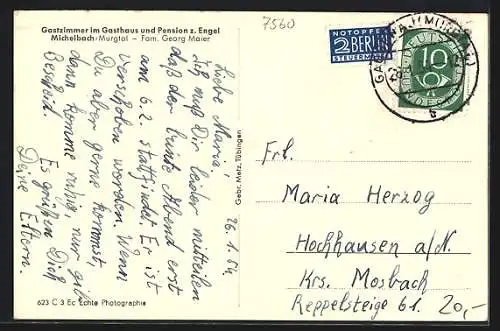 Gastzimmer im Gasthaus und Pension z. Engel
Michelbach-Murgtal - Fam. Georg Maier
7560
NOTOPFER
2 BERLIN
STEUERMARKE
15
26.1.54
Liebe Maria.
Ich muß Dir leider mitteilen
daß der bunte Abend erst
am 6.2. stattfindet. Er ist
verschoben worden. Wenn
Du aber gerne kommst,
dann komme ruhig nur gib
Bescheid.
Es grüßen Dich
Deine Eltern.
Gebr. Metz, Tübingen
Frl.
Maria Herzog
Hochhausen a/N.
Krs. Mosbach
Reppelsteige 61.
20,-
623 C 3 Ec Echte Photographie